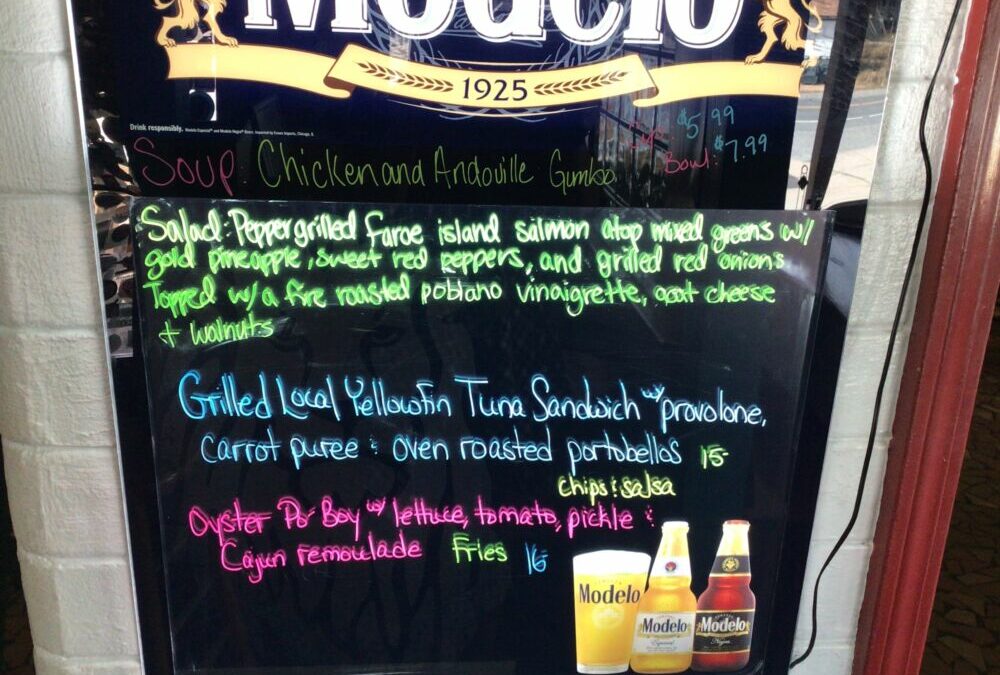 Modelo
1925
Drink responsibly.
Cup: $5.99
Soup: Chicken and Andouille Gumbo Bowl: $7.99
Salad: Pepper grilled Faroe island salmon atop mixed greens w/
gold pineapple, sweet red peppers, and grilled red onions
Topped w/a fire roasted poblano vinaigrette, goat cheese
+ walnuts
Grilled Local Yellowfin Tuna Sandwich w/ provolone,
Carrot puree & oven roasted portobellos 15-
chips & salsa
Oyster Po Boy w/ lettuce, tomato, pickle &
Cajun remoulade Fries 16-
Modelo
Modelo
Especial
Modelo
Negra